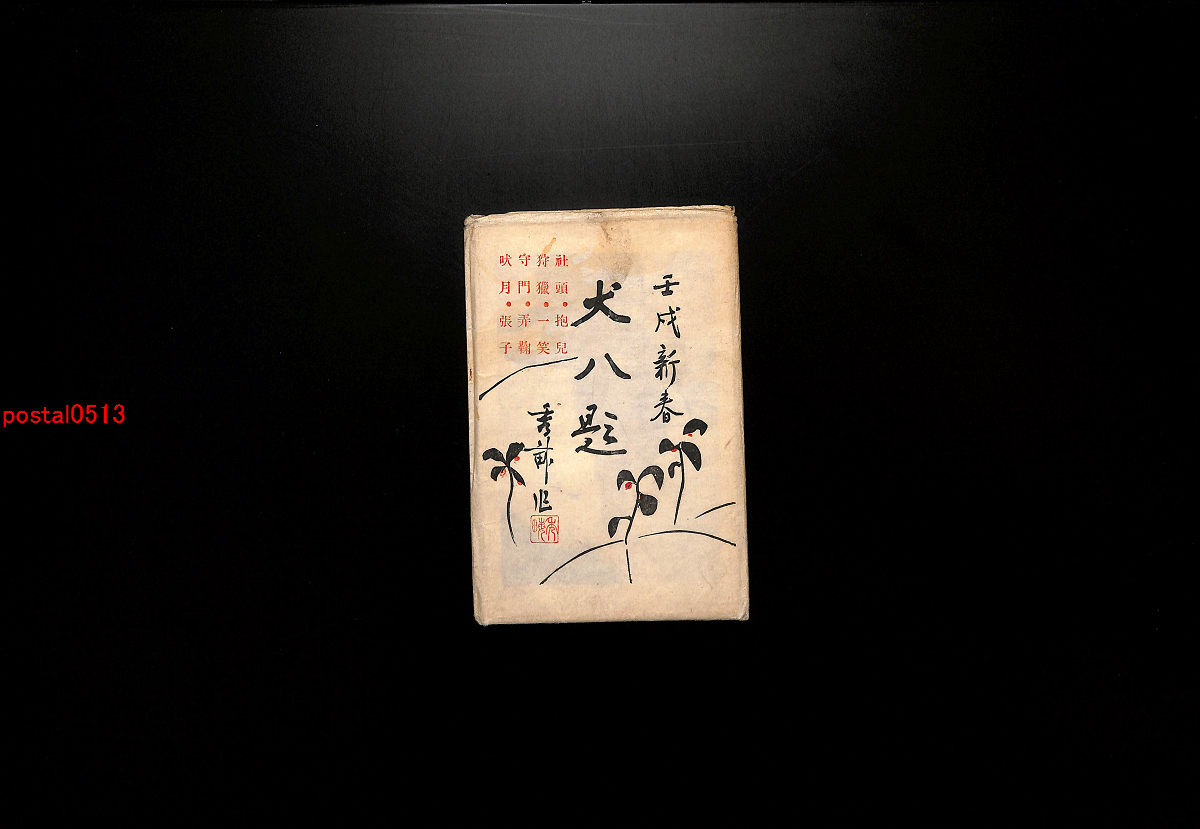 壬戌新春
犬八題
社頭•抱兒
狩獵•一笑
守門•弄鞠
吠月•張子
作
postal0513